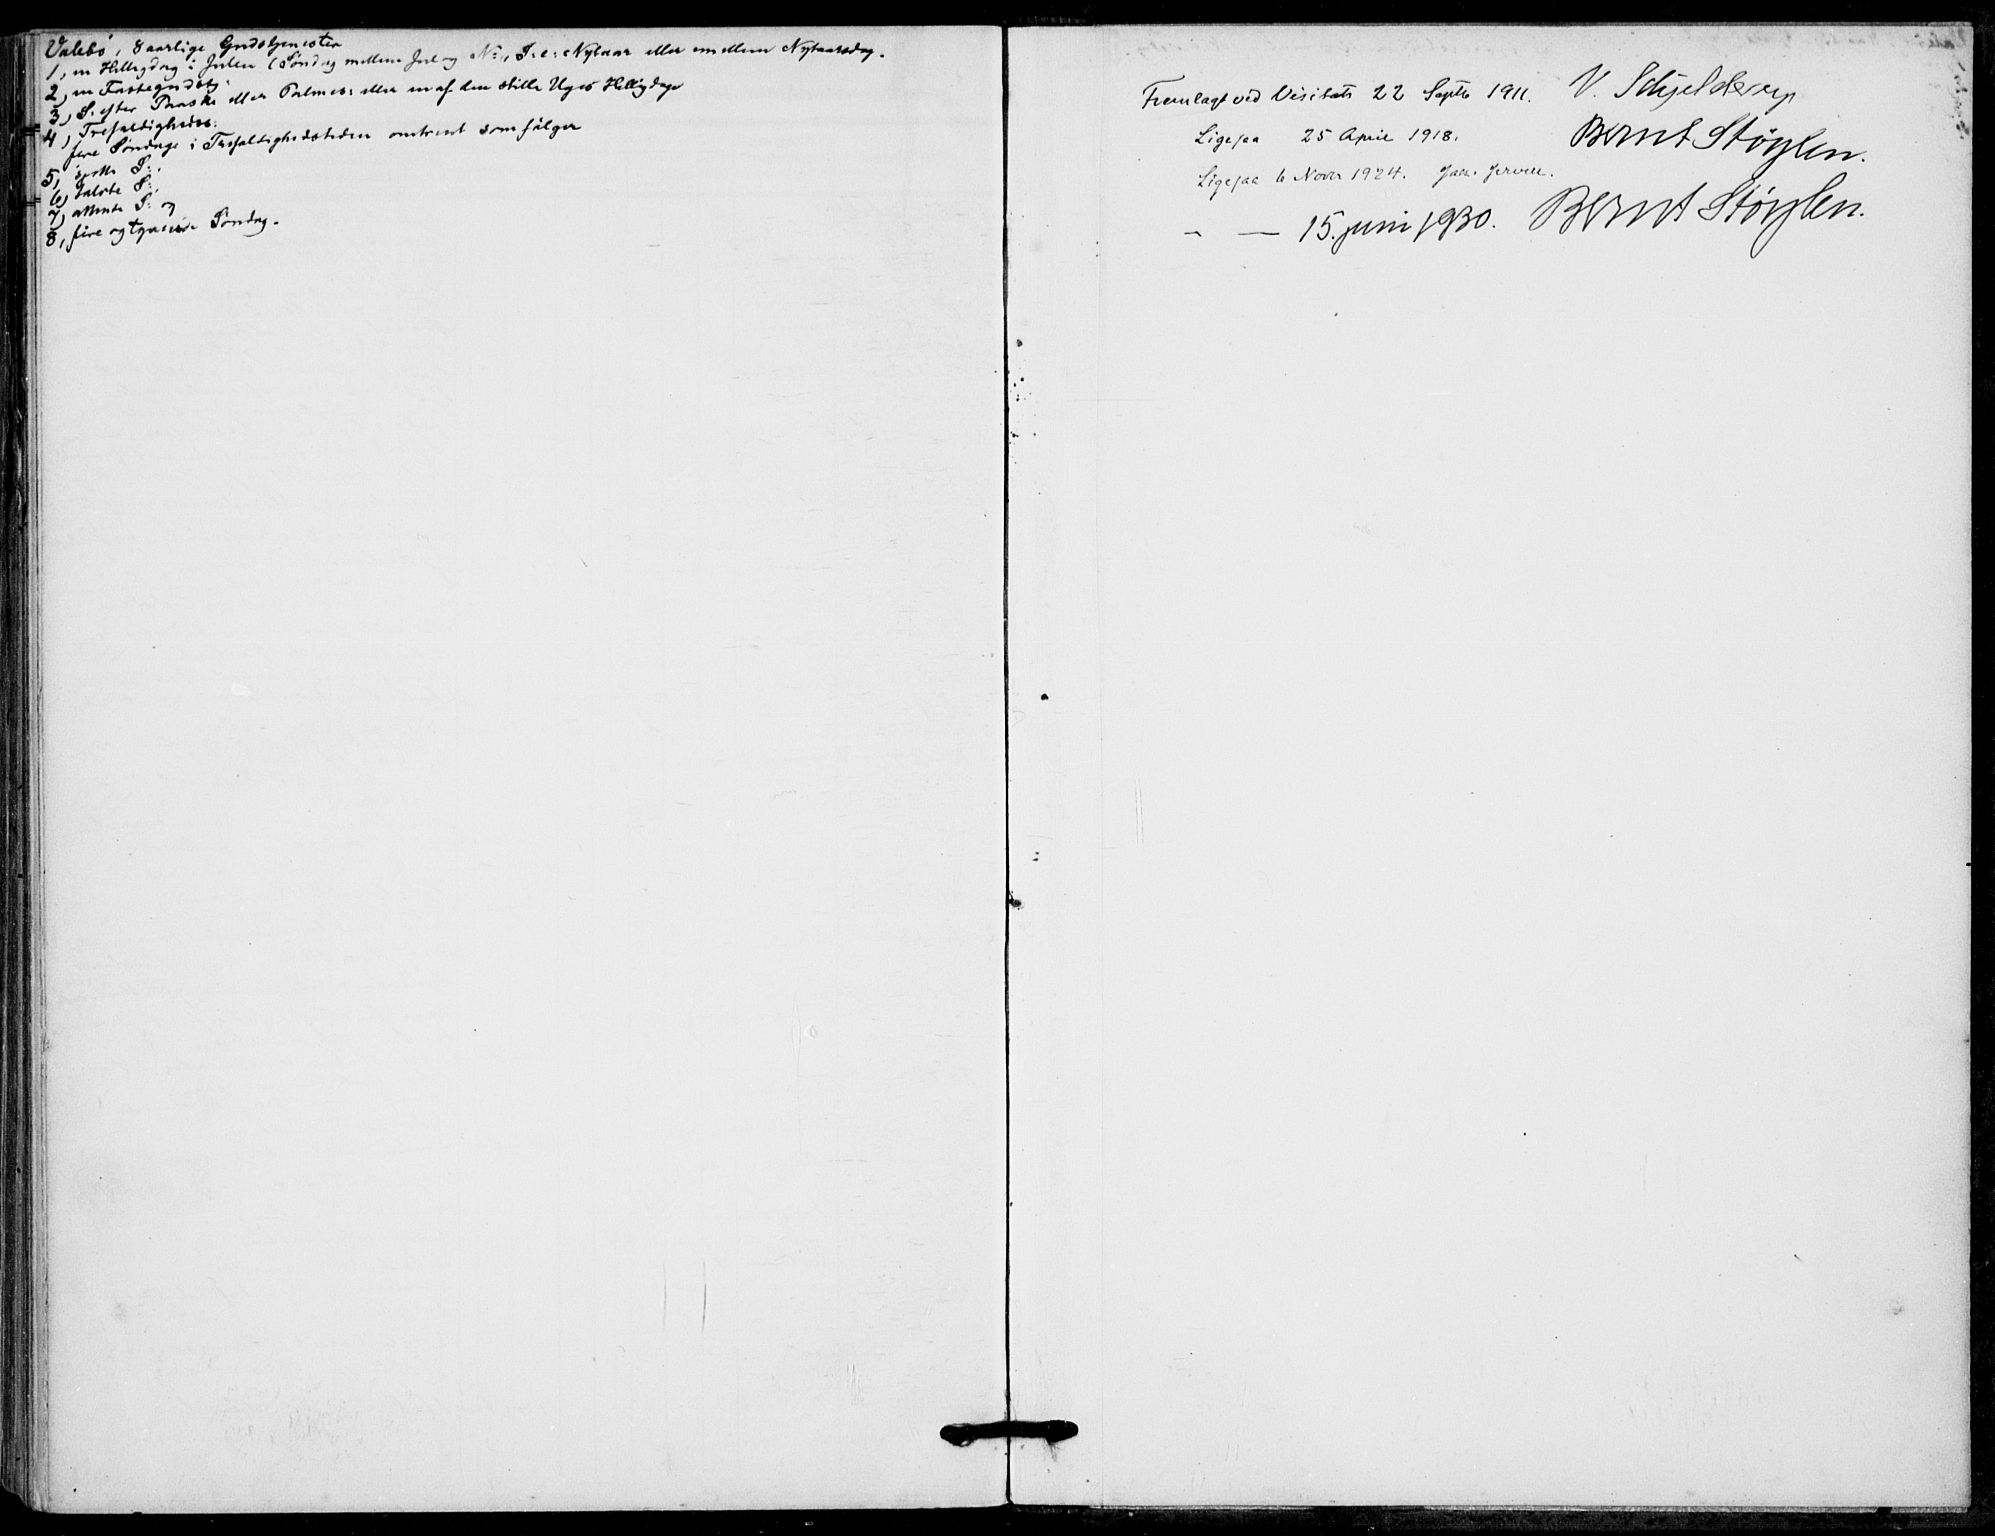 Valebö, 8 aarlige Gudstjenester
1, en Helligdag i Julen (Söndag mellem Jul og N:, S. e: Nytaar eller emellem Nytaarsdag.
2, en Fastegudstj:
3, S. efter Paaske eller Palmes: eller en af den stille Uges Helligdage
4, Trefoldigheds:
fire Söndage i Trefoldighedstiden omtrent som fölger
5, sjette S:,
6, tolvte S:,
7, attende S: og
8, fire og tyvende Söndag.
Fremlagt ved Visitats 22 Septb 1911. V. Schjelderup
Ligesaa 25 April 1918. Bernt Støylen.
Ligesaa 6 Novr 1924. Jac. Jervell.
" — 15. juni 1930. Bernt Støylen.